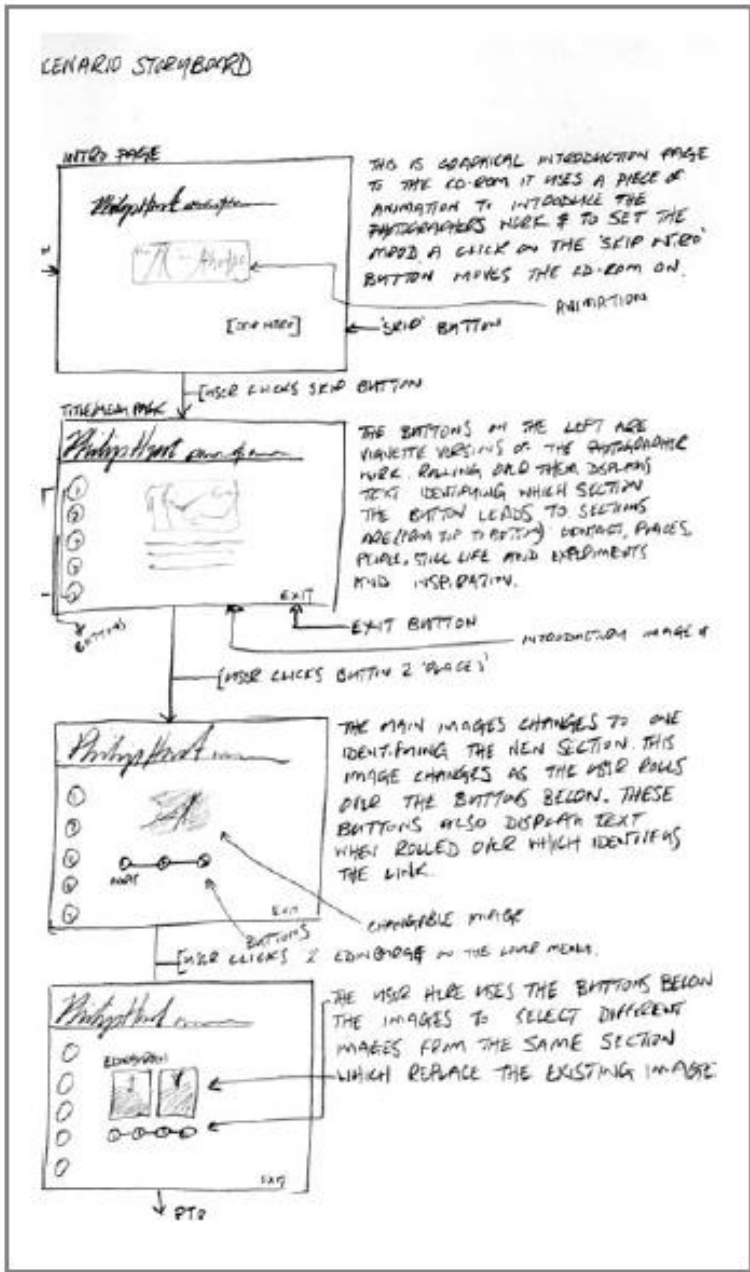 CENARIO STORYBOARD
INTRO PAGE
THIS IS GRAPHICAL INTRODUCTION PAGE
TO THE CD-ROM IT USES A PIECE OF
ANIMATION TO INTRODUCE THE
PHOTOGRAPHERS WORK & TO SET THE
MOOD. A CLICK ON THE 'SKIP INTRO'
BUTTON MOVES THE CD-ROM ON.
Philip Hunt
ANIMATION
[SKIP INTRO]
'SKIP' BUTTON
[USER CLICKS SKIP BUTTON
TITLE/MENU PAGE
Philip Hunt
THE BUTTONS ON THE LEFT ARE
VIGNETTE VERSIONS OF THE PHOTOGRAPHIC
WORK. ROLLING OVER THEM DISPLAYS
TEXT IDENTIFYING WHICH SECTION
THE BUTTON LEADS TO SECTIONS
ARE (FROM TOP TO BOTTOM) CONTACT, PLACES,
PEOPLE, STILL LIFE AND EXPERIMENTS
AND INSPIRATION.
EXIT
BUTTONS
EXIT BUTTON
INTRODUCTION IMAGE &
[USER CLICKS BUTTON 2 'PLACES'
Philip Hunt
THE MAIN IMAGES CHANGES TO ONE
IDENTIFYING THE NEW SECTION. THIS
IMAGE CHANGES AS THE USER ROLLS
OVER THE BUTTONS BELOW. THESE
BUTTONS ALSO DISPLAY TEXT
WHEN ROLLED OVER WHICH IDENTIFIES
THE LINK.
EXIT
CHANGABLE IMAGE
BUTTONS
[USER CLICKS 2 EDINBURGH ON THE LOWER MENU.
Philip Hunt
THE USER HERE USES THE BUTTONS BELOW
THE IMAGES TO SELECT DIFFERENT
IMAGES FROM THE SAME SECTION
WHICH REPLACE THE EXISTING IMAGE.
EDINBURGH
EXIT
PTO